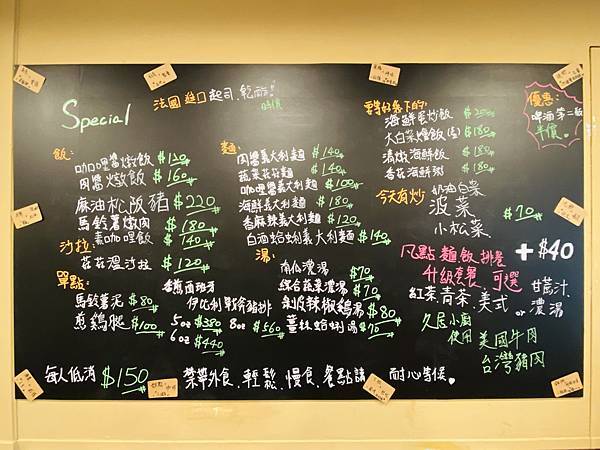 Special
法國進口起司、乾酪！
時價
飯：
咖哩醬燉飯 $120
肉醬燉飯 $160
麻油松阪豬 $220
馬鈴薯燉肉 $180
素咖哩飯 $140
沙拉：
菇菇溫沙拉 $120
單點：
馬鈴薯泥 $80
煎鷄腿 $100
麵：
肉醬義大利麵 $140
蔬菜菇菇麵 $140
咖哩醬義大利麵 $100
海鮮義大利麵 $180
香麻辣義大利麵 $120
白酒蛤蜊義大利麵 $140
湯：
南瓜濃湯 $70
綜合蔬菜濃湯 $70
剝皮辣椒鷄湯 $80
薑絲蛤蜊湯 $70
西班牙
伊比利戰斧豬排
5oz $380 8oz $560
6oz $440
海鮮蛋炒飯 $200
大白菜燴飯 $180
清燉海鮮飯 $180
香菇海鮮粥 $180
今天有炒
奶油白菜
菠菜
小松菜
$70
優惠：
啤酒第二瓶
半價
凡點麵飯排餐 + $40
升級套餐 可選
紅茶、青茶、美式
甘蔗汁
or 濃湯
久居小廚
使用 美國牛肉
台灣豬肉
每人低消 $150
禁帶外食、輕鬆、慢食、餐點請 耐心等候